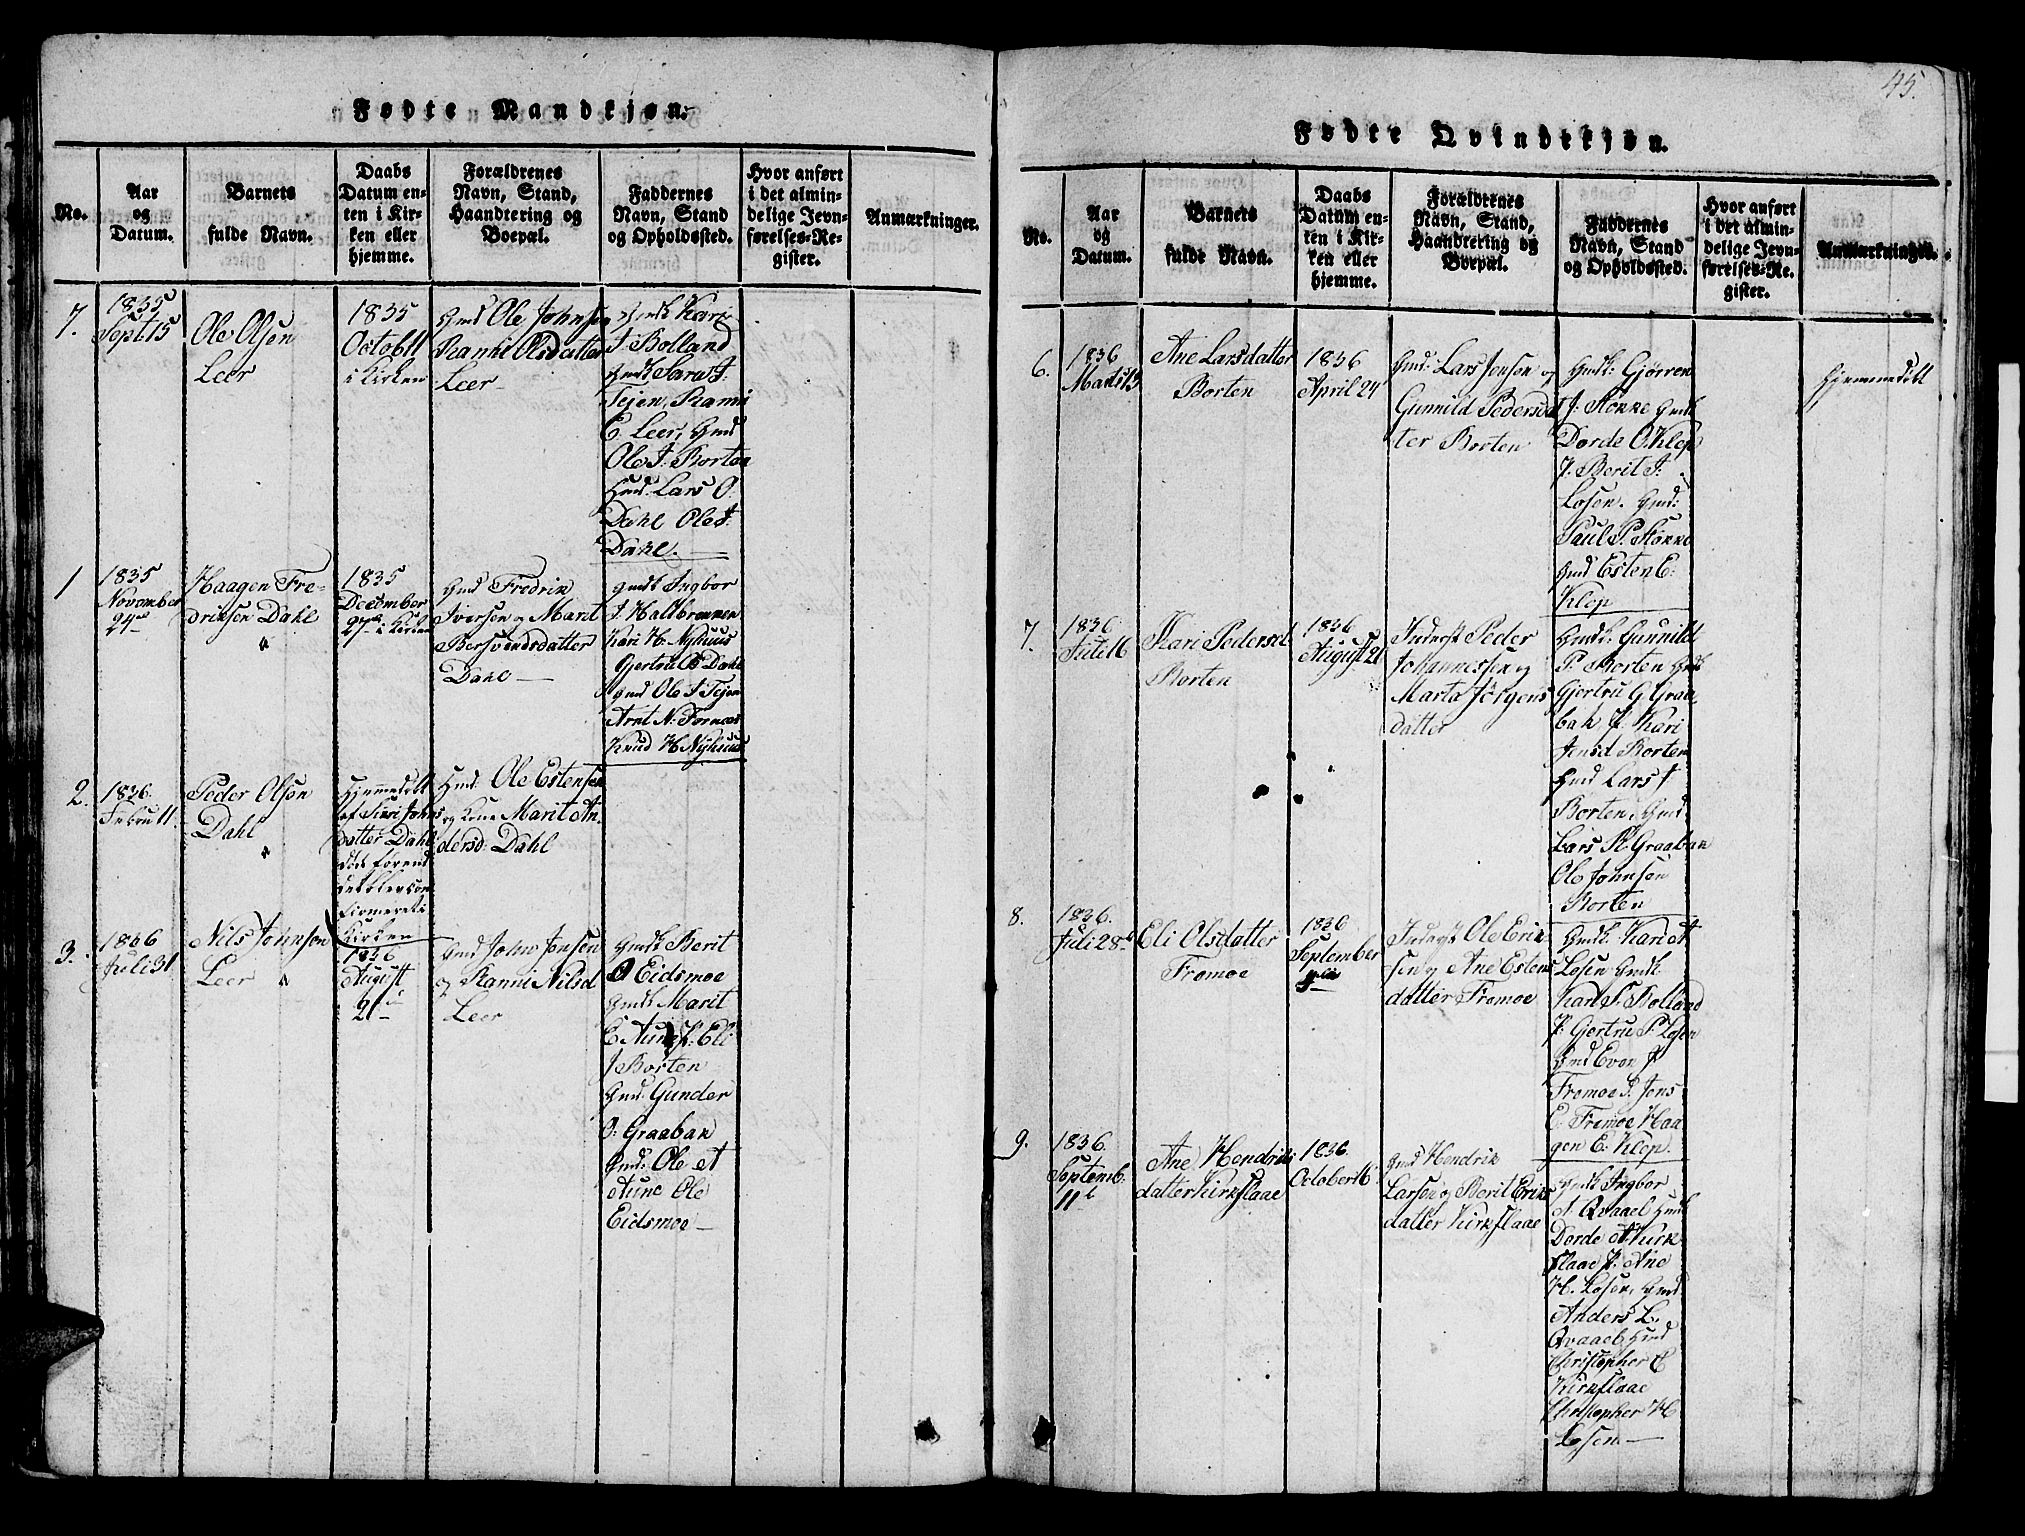 45.
Fødte Mandkjøn.
No.
Aar
og
Datum.
Barnets
fulde Navn.
Daabs
Datum en-
ten i Kir-
ken eller
hjemme.
Forældrenes
Navn, Stand,
Haandtering og
Boepæl.
Faddernes
Navn, Stand
og Opholdssted.
Hvor anført
i det almin-
delige Jevn-
førelses-Re-
gister.
Anmærkninger.
7.
1835
Sept. 15
Ole Olsen
Leer
1835
Octob 11
i Kirken
Gmd Ole Johnsen
Ranni Olsdatter
Leer
Gmdk Kari
J. Bolland
Gmdk Sara J.
Tejen, Ranni
E. Leer, Gmd
Ole J. Borten
Gmd. Lars O.
Dahl Ole J.
Dahl.
1
1835
November
24de
Haagen Fre-
driksen Dahl
1835
December
27de i Kirken
Gmd Fredrik
Iversen og Marit
Bersvendsdatter
Dahl
gmdk Ingbor
J. Haltbrennen
Kari H. Nyhuus
Gjertru B Dahl
gmd Ole J Tejen
Arnt N. Fornæs
Knud H. Nyhuus
2.
1836.
Febru 11.
Peder Olsen
Dahl
Hjemmedøbt
af Siri Johns
datter Dahl
død forend
det blev con
firmeret i
Kirken
Gmd. Ole Estensen
og Kone Marit An-
dersd. Dahl
3.
1836
Juli 31
Nils Johnsen
Leer
1836
August
21de
Gmd John Jensen
og Ranni Nilsd
Leer
Gmdk Berit
O Eidsmoe
Gmdk Marit
E Aune P. Eli
J Borten
Gmd. Gunder
O. Graabak
Gmd. Ole A
Aune Ole
Eidsmoe
Fødte Qvindekjøn.
No.
Aar
og
Datum.
Barnets
fulde Navn.
Daabs
Datum en-
ken i Kir-
ken eller
hjemme.
Forældrenes
Navn, Stand,
Haandtering og
Boepæl.
Faddernes
Navn, Stand
og Opholdssted.
Hvor anført
i det almin-
delige Jevn-
førelses-Re-
gister.
Anmærkninger.
6.
1836
Marts 13
Ane Larsdatter
Borten
1836
April 24
Gmd. Lars Jonsen og
Gunnild Pedersdat
ter Borten
Gmdk. Gjørren
J. Støkke Gmdk
Dorde O. Klep
P. Berit J.
Losen. Gmd.
Paul P. Støkke
Gmd Esten E.
Klep
Hjemmedøbt
7.
1836
Juli 16
Kari Pedersd
Borten
1836
August 21
Inderst Peder
Johannessen og
Marta Jörgens
datter
Gmdk. Gunnild
P. Borten Gmdk
Gjertru G Graa
bak P. Kari
Jensd Borten
Gmd Lars J
Borten, Gmd.
Lars R Graabak
Ole Johnsen
Borten
8.
1836.
Juli 28
Eli Olsdatter
Fremoe
1836
September
4de
Inderst Ole Erik
sen og Ane Estens
datter Fremoe
Gmdk. Kari A
Losen Gmdk
Kari P. Bolland
P. Gjertru P. Losen
Gmd Even J
Fremoe P. Jens
E. Fremoe Haa
gen E. Klep.
9.
1836.
Septemb.
11te
Ane Hendriks
datter Kirkflaae
1836.
October 16
Gmd Hendrik
Larsen og Berit Eriks
datter Kirkflaae
Gmdk Ingbor
A. Qvaael Gmdk
Dorde A. Kirk
flaae P. Ane
H. Losen, Gmd.
Anders L.
Qvaael Gmd
Christopher E
Kirkflaae
Christopher H
Losen